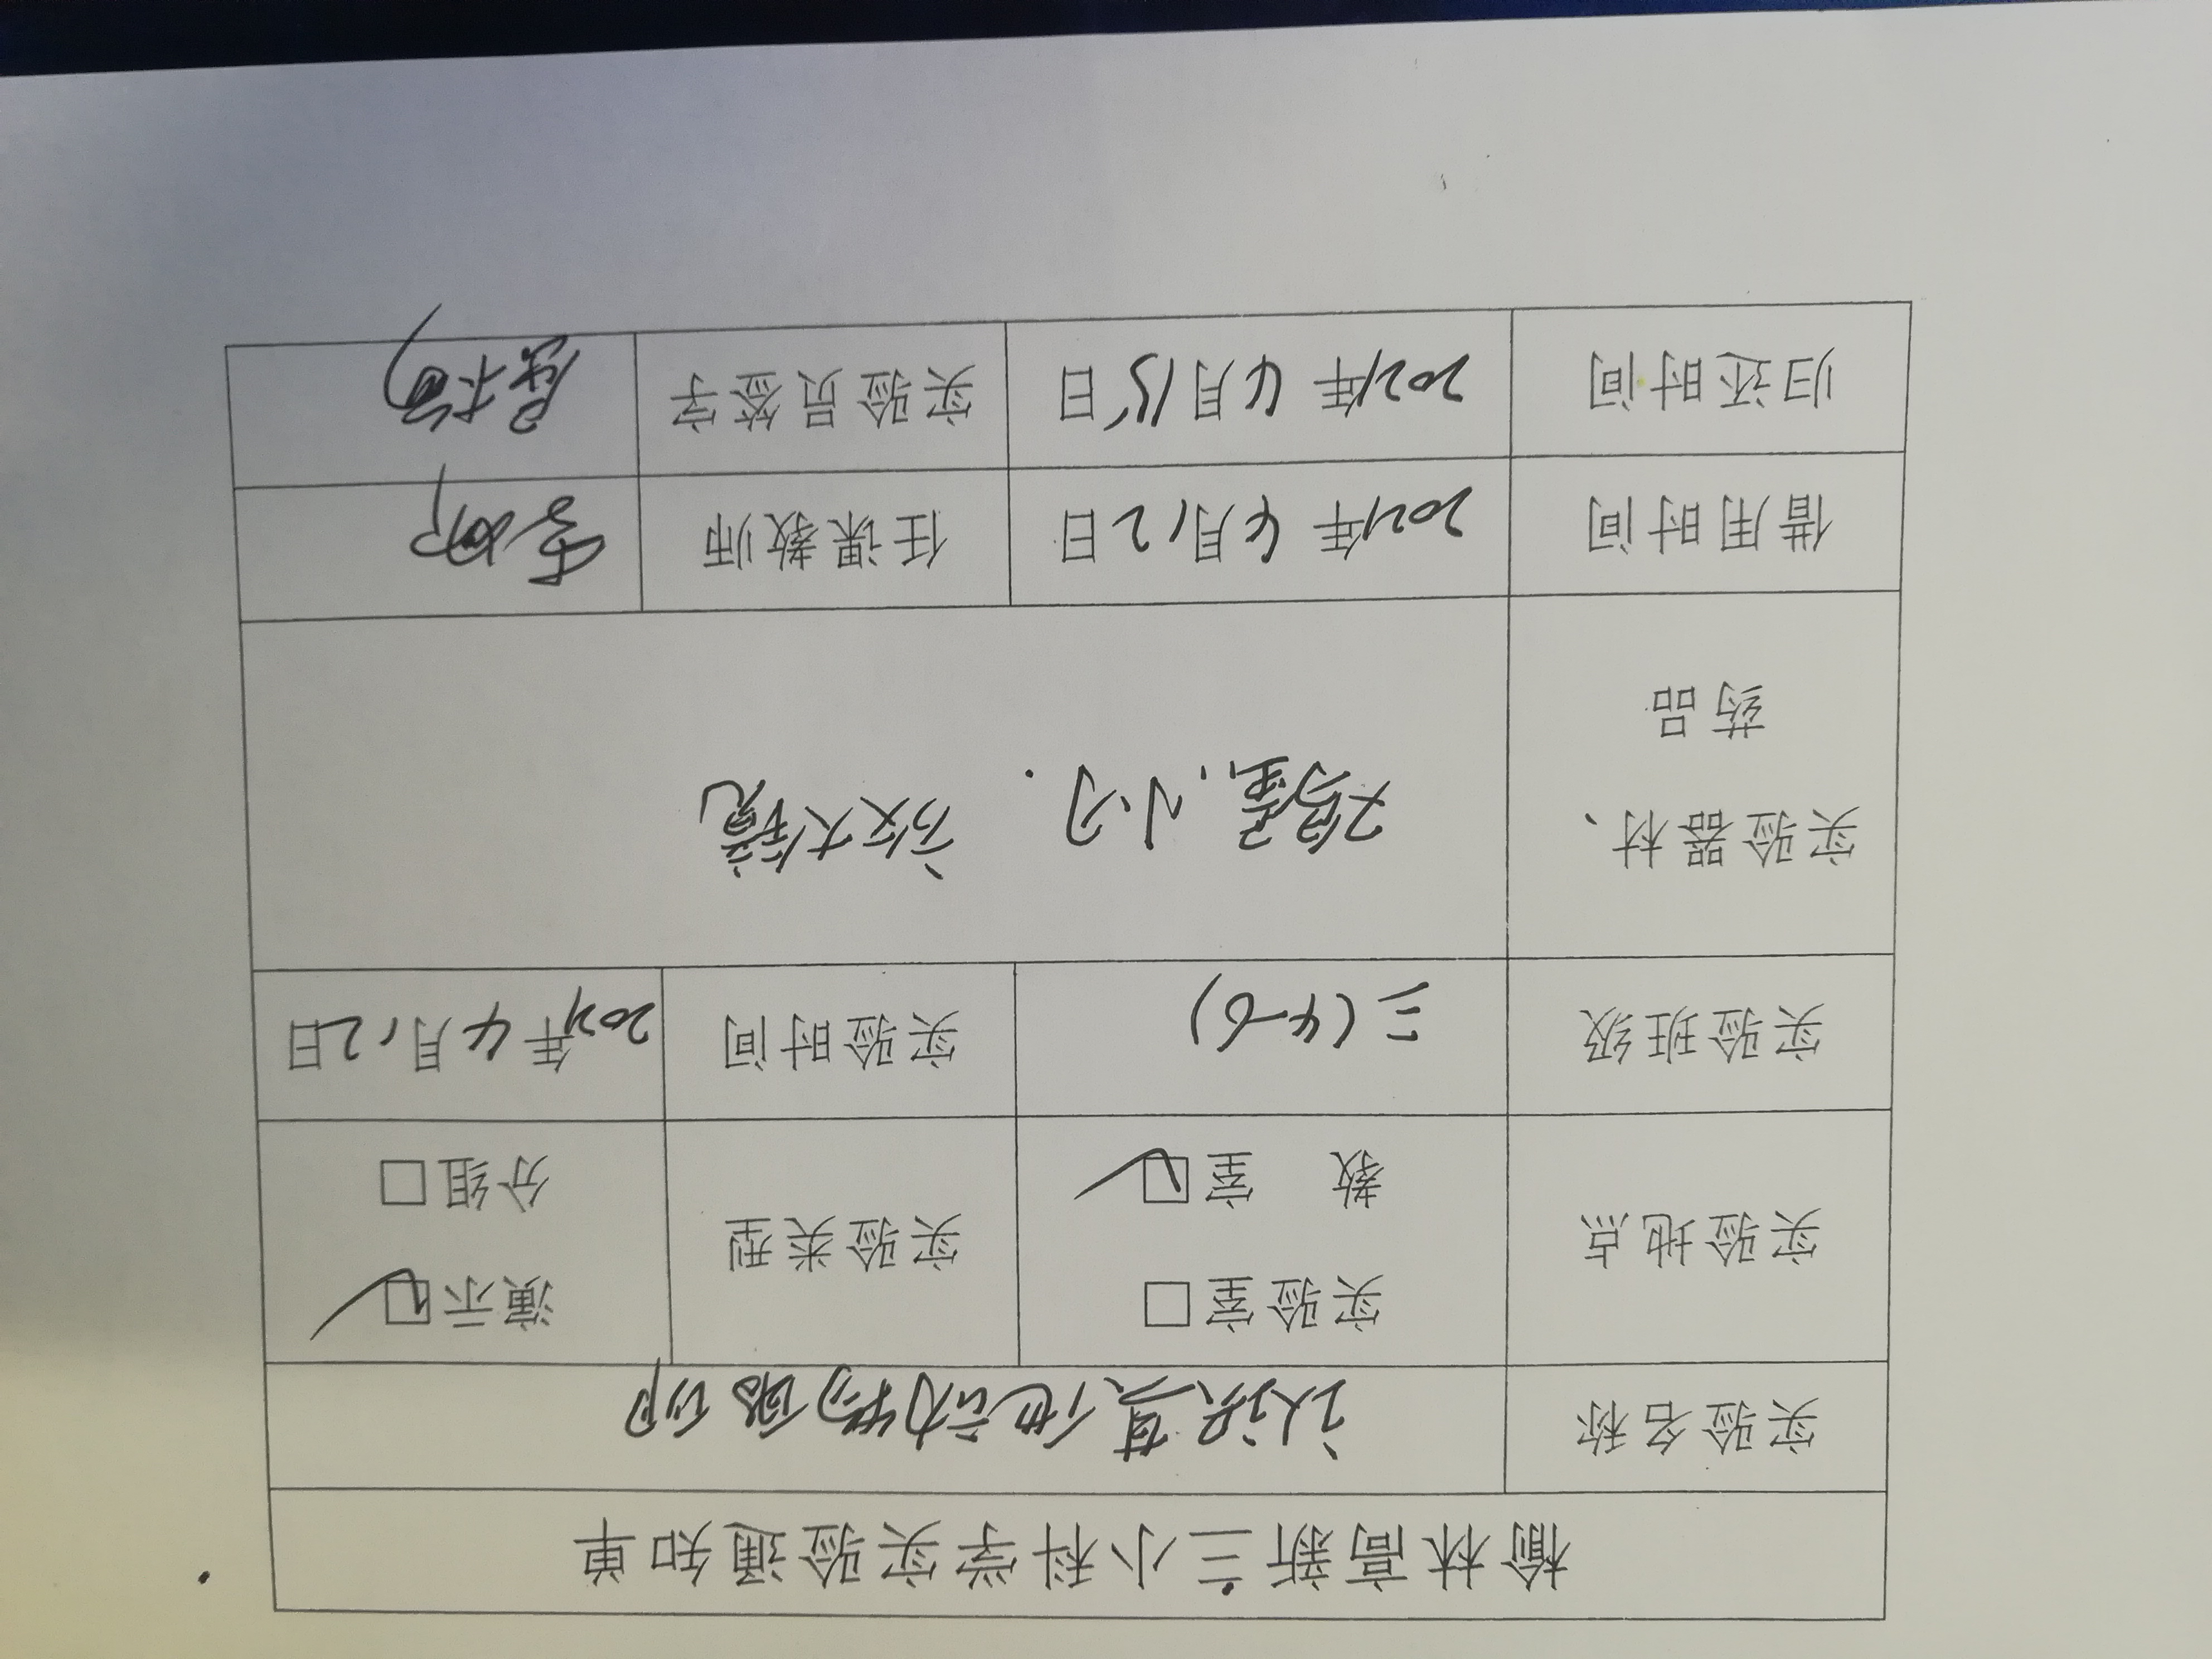 榆林高新三小科学实验通知单
实验名称 认识其他动物的卵
实验地点 实验室□ 教 室☑ 实验类型 演示☑ 分组□
实验班级 三(4-6) 实验时间 2021年4月12日
实验器材、药品 鸡蛋、小刀. 放大镜
借用时间 2021年4月12日 任课教师
归还时间 2021年4月15日 实验员签字